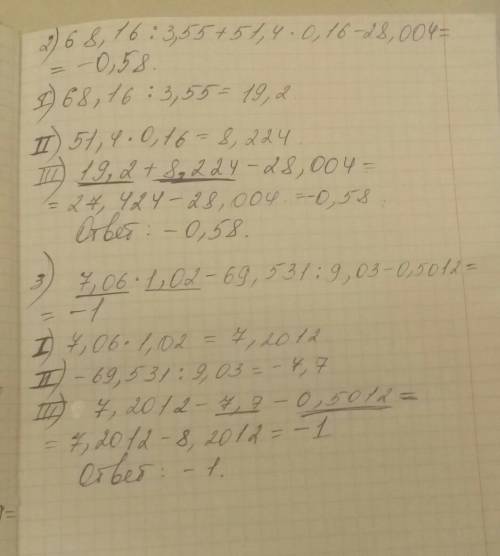 2) 68,16 : 3,55 + 51,4 · 0,16 - 28,004 =
= -0,58.
I) 68,16 : 3,55 = 19,2
II) 51,4 · 0,16 = 8,224
III) 19,2 + 8,224 - 28,004 =
= 27,424 - 28,004 = -0,58
Ответ: -0,58.
3) 7,06 · 1,02 - 69,531 : 9,03 - 0,5012 =
= -1
I) 7,06 · 1,02 = 7,2012
II) -69,531 : 9,03 = -7,7
III) 7,2012 - 7,7 - 0,5012 =
= 7,2012 - 8,2012 = -1
Ответ: -1.